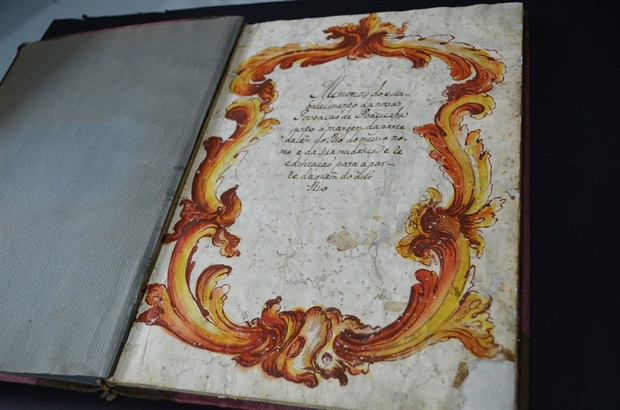 Memorias do esta-
balecimento da nova
Povoação de Piracicaba
junto á margem da parte
dalém do Rio do mesmo no-
me e da sua mudança e re
edificação para a par-
te daquém do dito
Rio